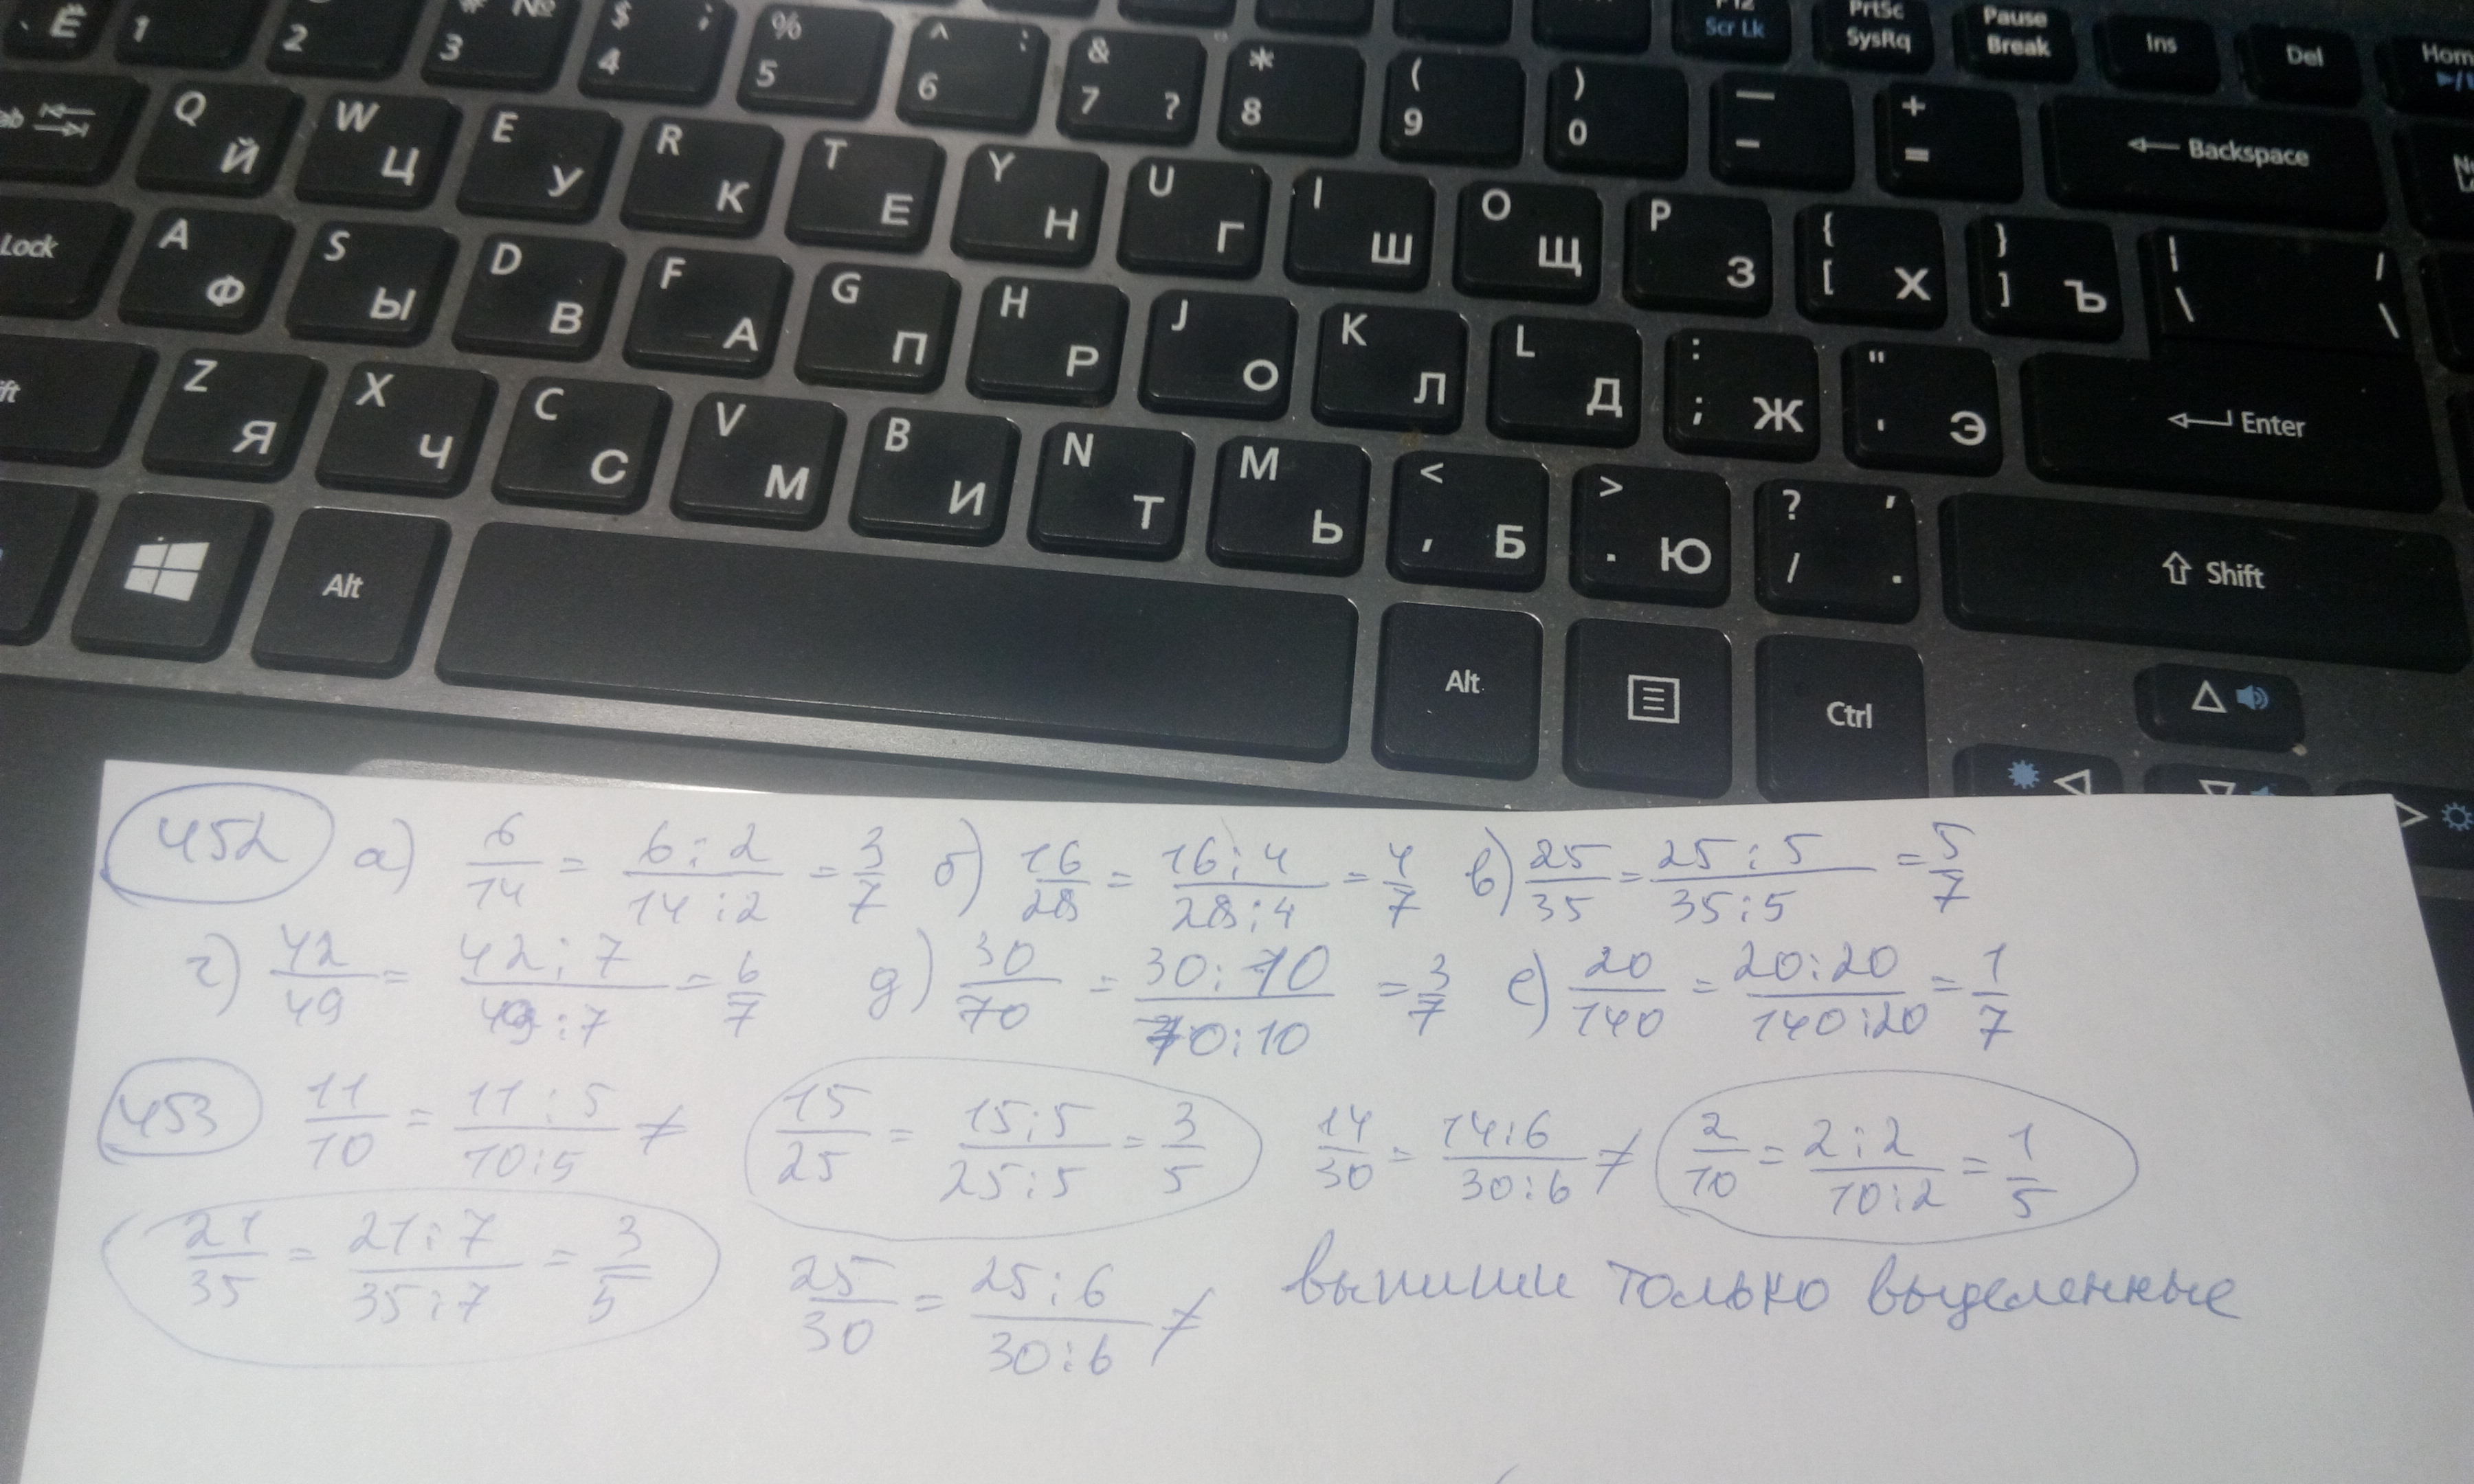 Ё 1 2 # № 3 $ ; 4 % 5 ^ : 6 & 7 ? * 8 ( 9 ) 0 — - + = Backspace
Scr Lk PrtSc SysRq Pause Break Ins Del
Q Й W Ц E У R К T Е Y Н U Г I Ш O Щ P З { [ Х } ] Ъ | \ / \
Lock A Ф S Ы D В F А G П H Р J О K Л L Д : ; Ж " ' Э Enter
Z Я X Ч C С V М B И N Т M Ь < , Б > . Ю ? / , . Shift
Alt Alt Ctrl
452 а) 6/14 = 6:2/14:2 = 3/7 б) 16/28 = 16:4/28:4 = 4/7 в) 25/35 = 25:5/35:5 = 5/7
г) 42/49 = 42:7/49:7 = 6/7 д) 30/70 = 30:10/70:10 = 3/7 е) 20/140 = 20:20/140:20 = 1/7
453 11/10 = 11:5/10:5 ≠ 15/25 = 15:5/25:5 = 3/5 14/30 = 14:6/30:6 ≠ 2/10 = 2:2/10:2 = 1/5
21/35 = 21:7/35:7 = 3/5 25/30 = 25:6/30:6 ≠ выпиши только выделенные